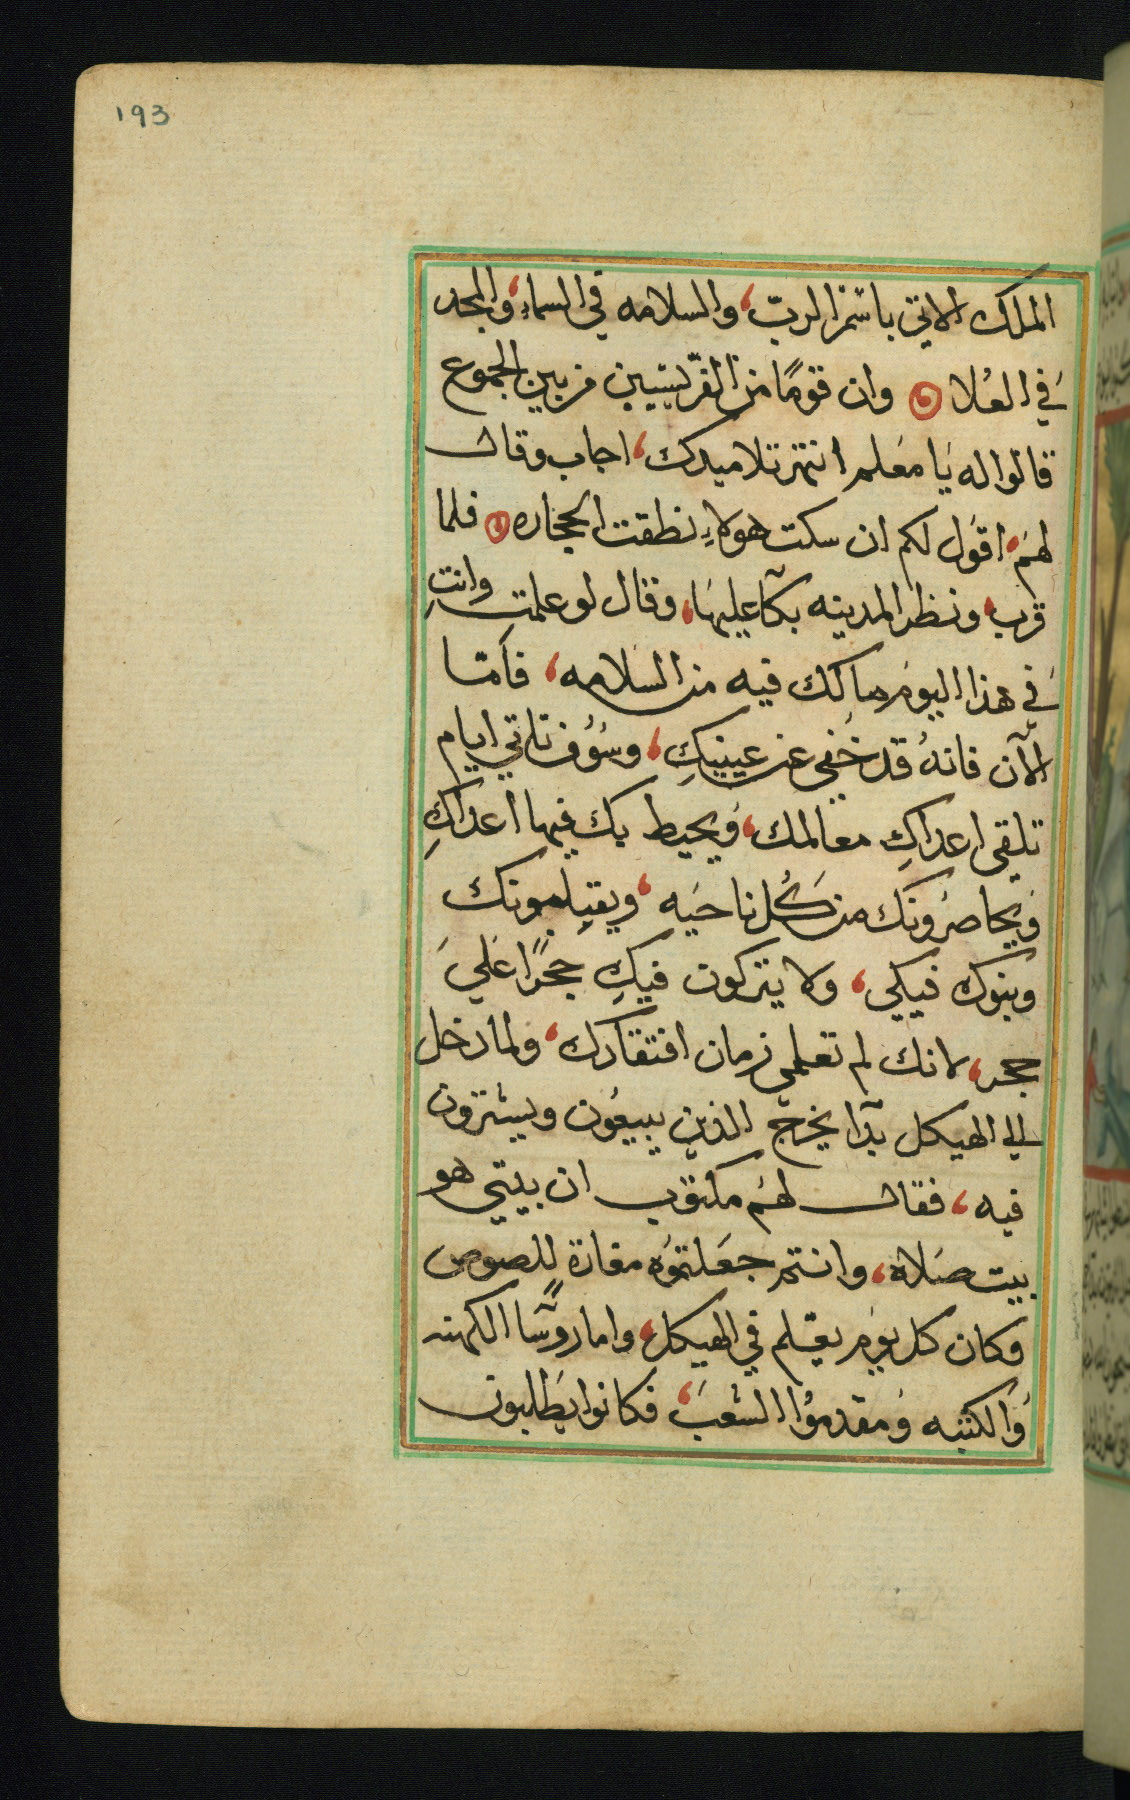 193
الملك الاتي باسم الرب، والسلامه في السماء، والمجد
في العُلا وان قومًا من الفرّيسيين من بين الجموع
قالوا له يا معَلم انتهر تلاميدك، اجاب وقال
لهم، اقول لكم ان سكت هولاءِ نطقت الحجاره فلما
قرب، ونظر المدينه بكا عليها، وقال لو علمتِ وانتِ
في هذا اليوم ما لك فيه من السلامه، فامّا
الآن فانهُ قد خُفي عن عينيكِ، وسَوُف تاتي ايام
تلقي اعداكِ معالمك، ويحيط بك فيها اعداكِ
ويحاصرونك من كُل ناحيَه، ويقتلمونك
وبنوك فيكي، ولا يتركون فيكِ حجرًا علي
حجر، لانك لم تعلمي زمان افتقادك، ولما دخل
الي الهيكل بدا يخرج الذين يبيعُون ويشترون
فيه، فقال لهم مكتوب ان بيتي هو
بيت صَلاة، وانتم جعَلتموُه مغارة للصوص
فكان كل يوم يعَلم في الهيكل، واما روسَا الكهنه
والكتبه ومقدموُا الشعب، فكانوا يطلبون